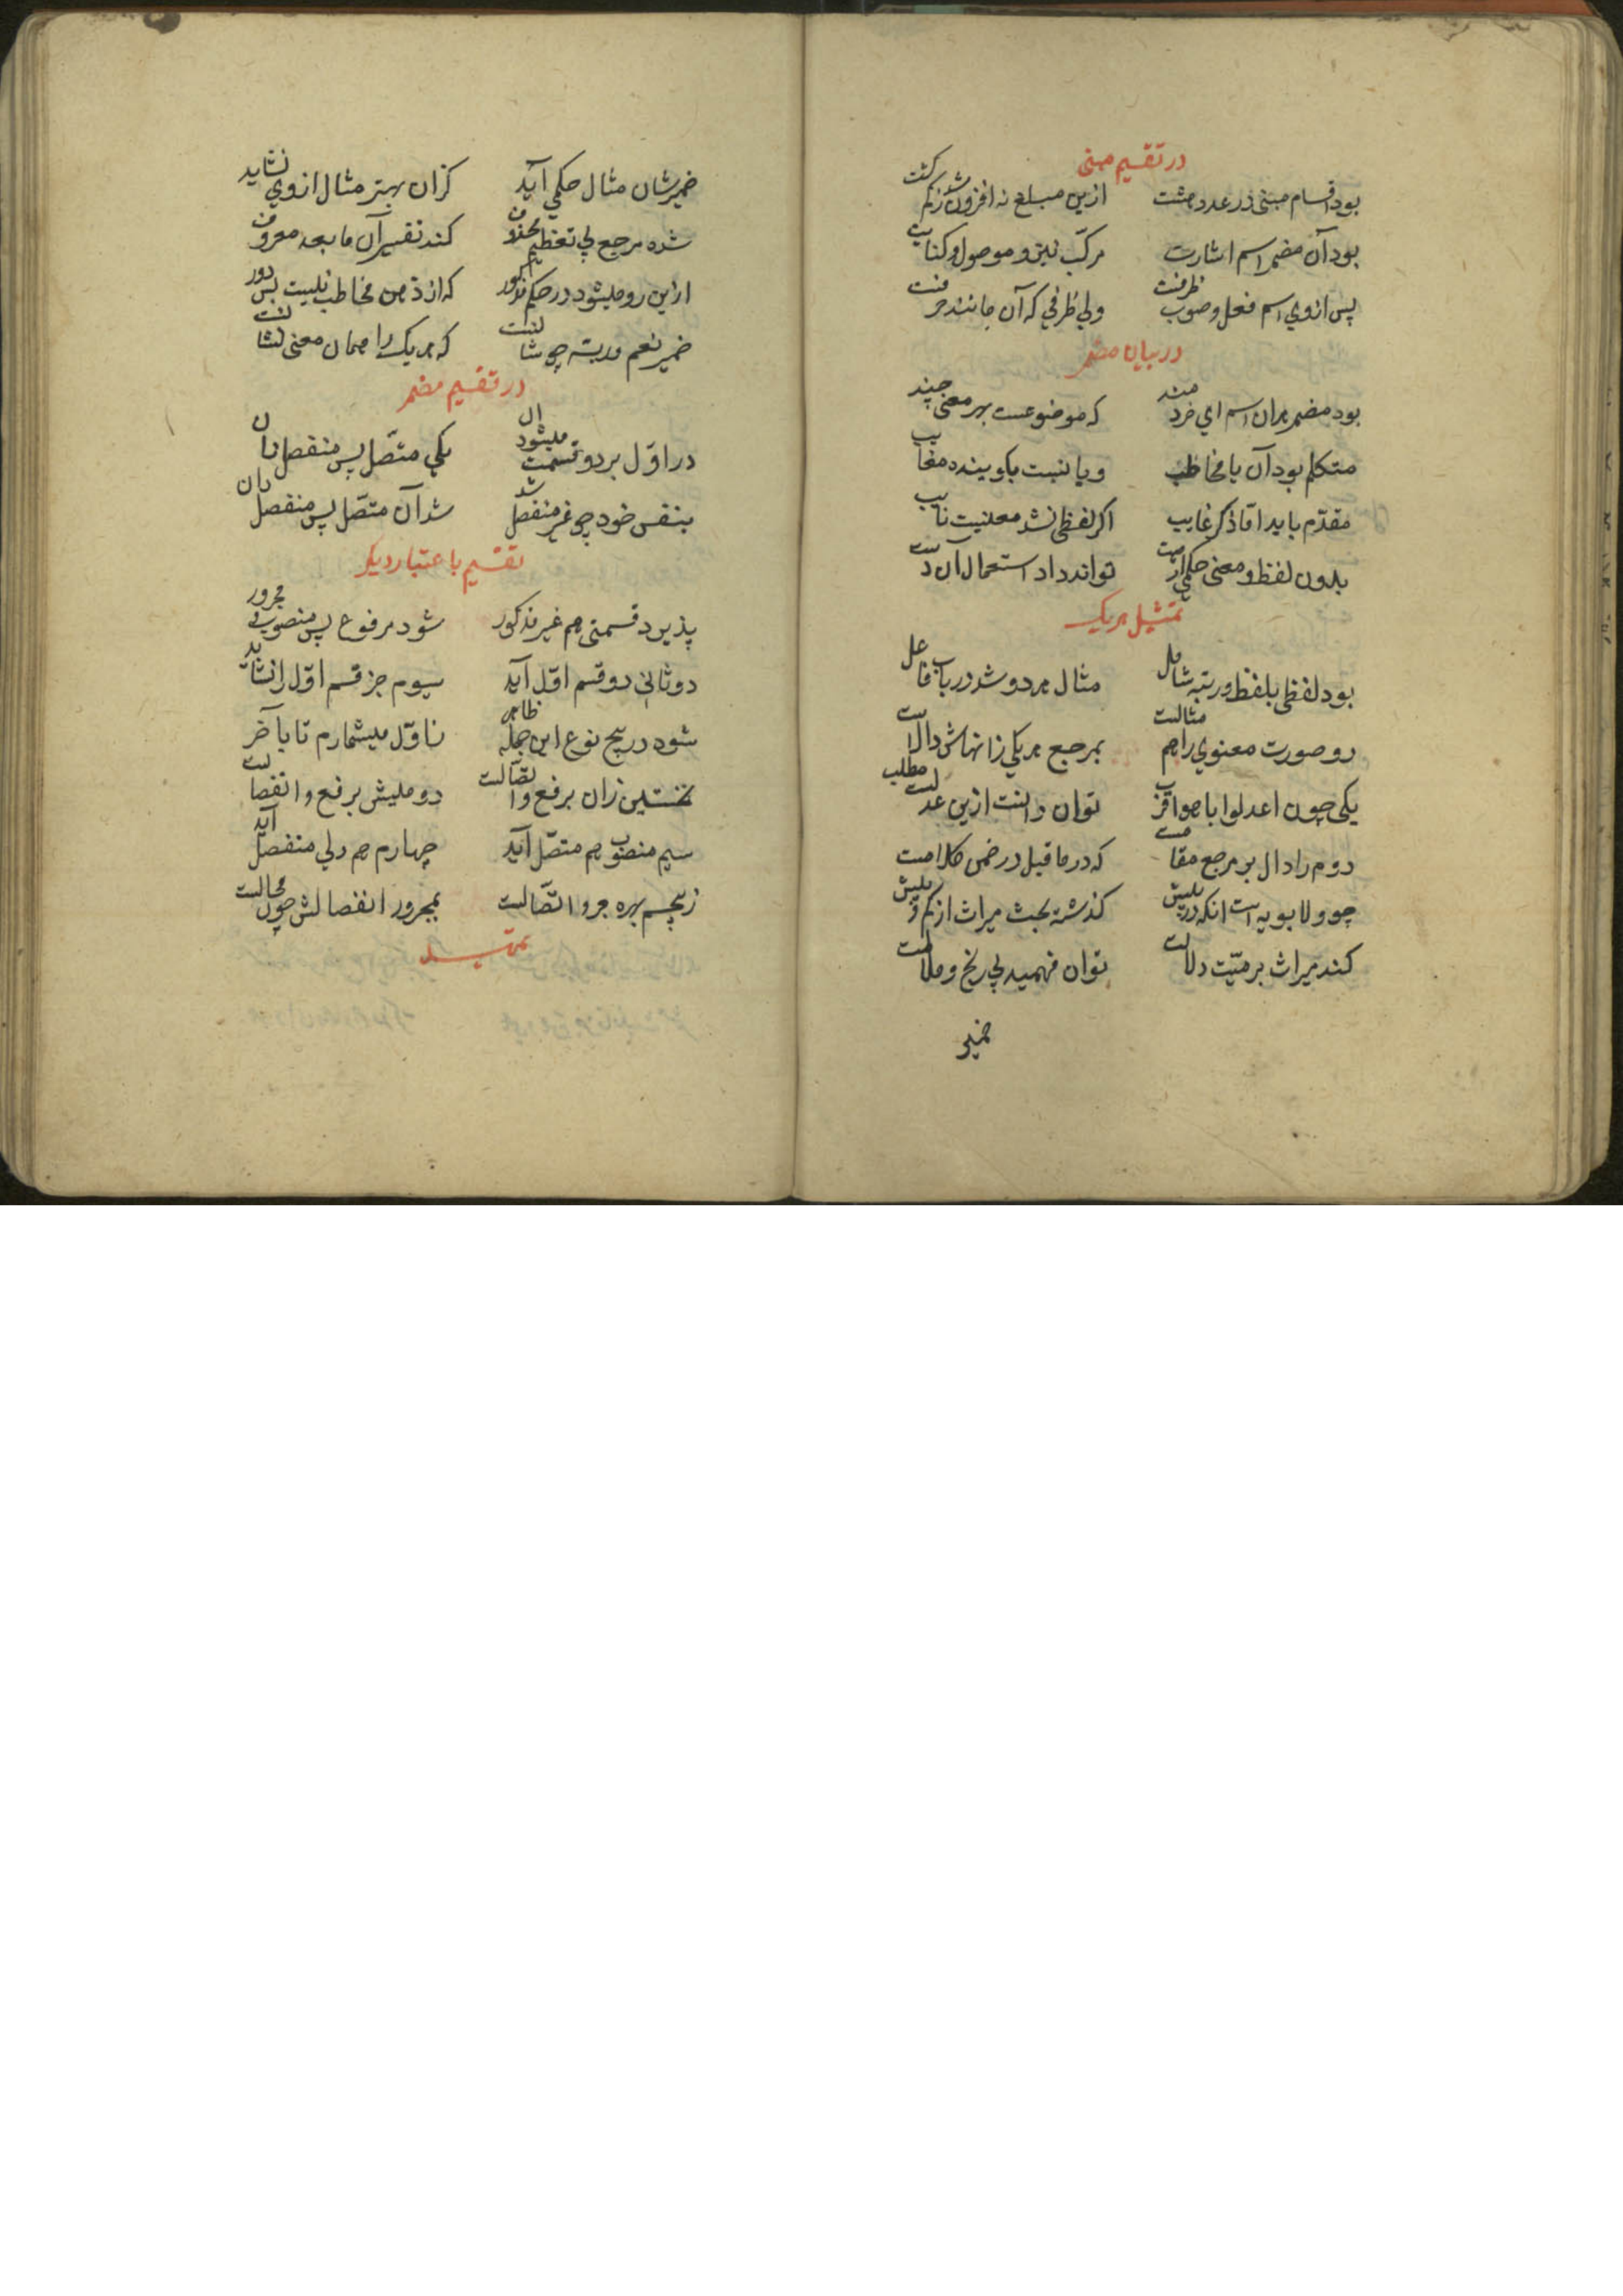 در تقسیم مبنی
بود اقسام مبنی در عدد هشت ازین مبلغ نه افزون شد نه کم کشت
بود آن مضمر اسم اشارت مرکّب نیز و موصول و کنایت
پس از وی اسم فعل و صوب ظرفست ولی ظرفی که آن مانند حرفست
در بیان مضمر
بود مضمر بدان اسم ای خردمند که موضوعست بهر معنی چند
متکلم بود آن یا مخاطب و یا نسبت بکوینده مغایب
مقدّم باید امّا ذکر غایب اکر لفظی نشد معنیست نایب
بدون لفظ و معنی حکمی ارهست تواند داد استعمال آن دست
تمثیل هریک
بود لفظی بلفظ و رتبه شامل مثال هر دو شد در باب فاعل
دو صورت معنوی را هم مثالست بمرجع هر یکی زانهاش دالست
یکی چون اعدلوا با هو اقرب توان دانست ازین عدلست مطلب
دوم را دال بر مرجع مقامست که در ماقبل در ضمن کلامست
چو ولابویه است انکه در پیش کذشته بحث میراث از کم و بیش
کند میراث بر میّت دلالت توان فهمید بی رنج و ملالت
ضمیر
ضمیر شان مثال حکمی آید کزان بهتر مثال از وی نشاید
شده مرجع پی تعظیم محذوف کند تفسیر آن ما بعد معروف
ازین رو میشود در حکم مذکور که از ذهن مخاطب نیست بس دور
ضمیر نعم و ربّه چو شانست که هر یک را همان معنی نشانست
در تقسیم مضمر
در اوّل بر دو قسمت میشود آن یکی متّصل پس منفصل دان
بنفس خود چو غیر منفصل شد شد آن متّصل پس منفصل دان
تقسیم باعتبار دیکر
پذیرد قسمتی هم غیر مذکور شود مرفوع پس منصوب و مجرور
دو ثانی دو قسم اوّل آید سیوم جز قسم اوّل را نشاید
شود در پنج نوع این جمله ظاهر ز اوّل میشمارم تا بآخر
نخستین زان برفع و اتّصالست دومیش برفع و انفصالست
سیم منصوب هم متصّل آید چهارم هم ولی منفصّل آید
ز پنجم بهره جر و اتّصالست بمجرور انفصالش چون محالست
تمثیل